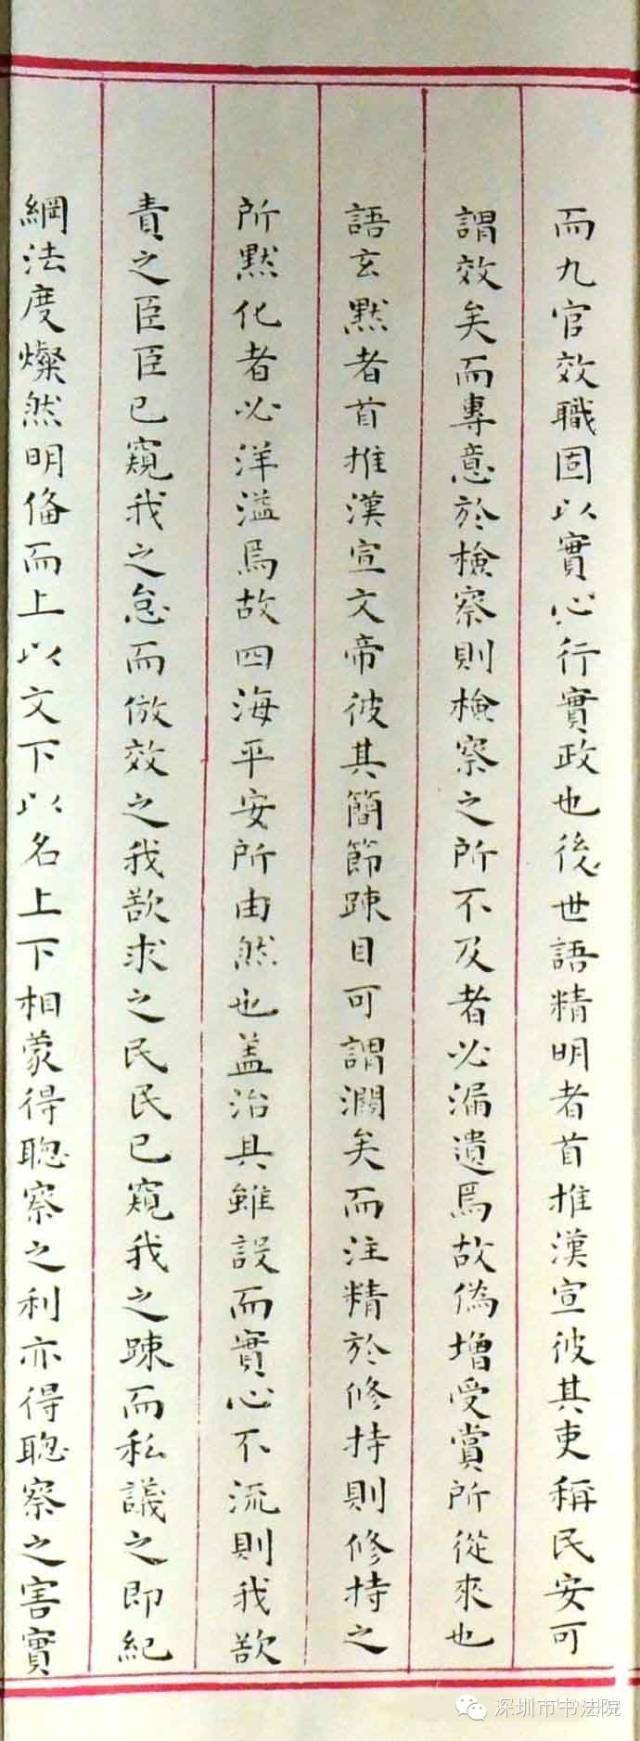 而九官效職固以實心行實政也後世語精明者首推漢宣彼其吏稱民安可
謂效矣而專意於檢察則檢察之所不及者必漏遺焉故偽增受賞所從來也
語玄默者首推漢宣文帝彼其簡節踈目可謂濶矣而注精於修持則修持之
所默化者必洋溢焉故四海平安所由然也盖治具雖設而實心不流則我欲
責之臣臣已窺我之怠而倣效之我欲求之民民已窺我之踈而私議之即紀
綱法度燦然明俻而上以文下以名上下相蒙得聦察之利亦得聦察之害實
深圳市书法院